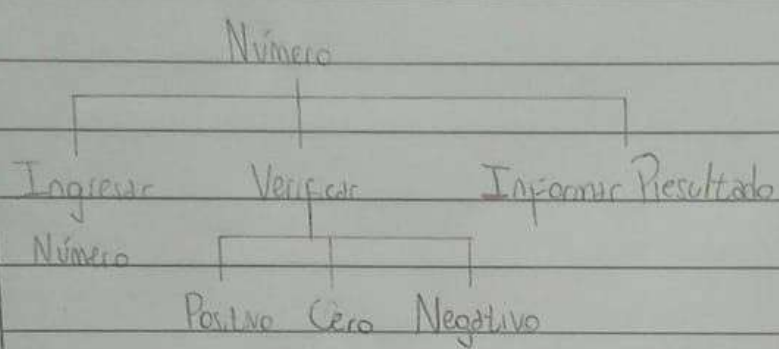 Número
Ingresar Verificar Informar Resultado
Número
Positivo Cero Negativo